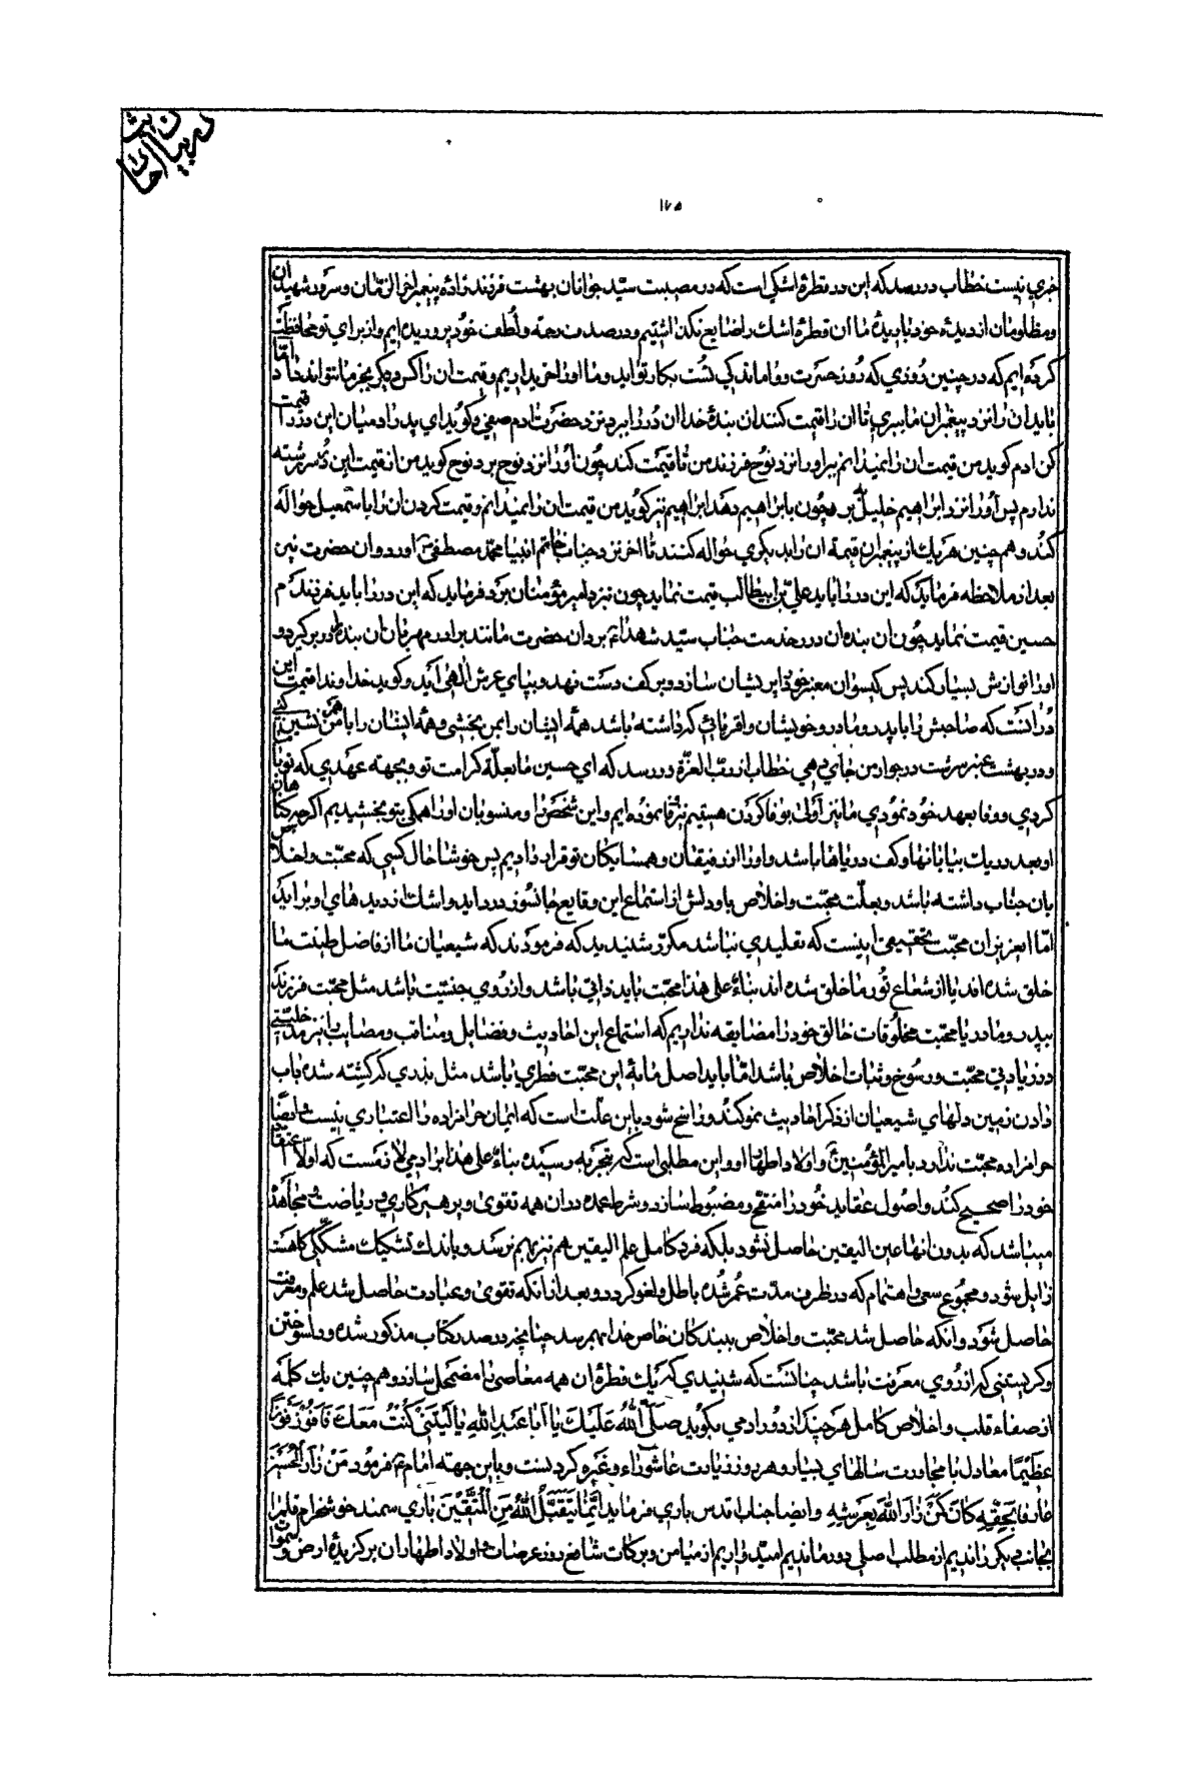 در بیان
احادیث
۱۲۵
خبری نیست خطاب در رسد که این در قطرهٔ اشکی است که در مصیبت سید جوانان بهشت فرزند زادهٔ پیغمبر اخر الزمان و سرور شهیدان
و مظلومان از دیدهٔ خود باریدهٔ ما ان قطره اشك را ضایع نگذاشتیم و در صدف رحمة و لطف خود پروریده ایم و از برای تو محافظت
کرده ایم که در چنین روزی که روز حسرت و واماندگی تست بکار تو اید و ما او را خریداریم و قیمت ان را کس دیگر بجز ما نتواند داد اما
باید ان را نزد پیغمبران ما ببری تا ان را قیمت کنند ان بندهٔ خدا ان در را برد نزد حضرت ادم صفی و گوید ای پدر ادمیان این در را قیمت
کن ادم گوید من قیمت ان را نمیدانم ببر او را نزد نوح فرزند من تا قیمت کند چون او را نزد نوح برد نوح گوید من از قیمت این در سررشته
ندارم پس او را نزد ابراهیم خلیل بر چون بابراهیم دهد ابراهیم نیز گوید من قیمت ان را نمیدانم و قیمت کردن ان را باسمعیل حواله
کند و هم چنین هر یك از پیغمبران قیمة ان را بدیگری حواله کنند تا اخر نزد جناب خاتم انبیا محمد مصطفی ص اورد و ان حضرت نیز
بعد از ملاحظه فرماید که این در را باید علی بن ابیطالب قیمت نماید چون نزد امیر مؤمنان برد فرماید که این در را باید فرزندم
حسین قیمت نماید چون ان بنده ان در را خدمت جناب سید شهداء برد ان حضرت مانند برادر مهربان ان بنده را در بر گیرد و
او را نوازش بسیار کند پس گیسوان معنبر خود را پریشان سازد و در بر کف دست نهد و بپای عرش الهی اید و گوید خداوندا قیمت این
در انست که صاحبش را با پدر و مادر و خویشان و اقربائی که داشته باشد همهٔ ایشان را بمن بخشی و همهٔ ایشان را با من همنشین کنی
و در بهشت عنبر سرشت در جوار من جای دهی خطاب از رب العزة در رسد که ای حسین ما بعلة کرامت تو و بجهته عهدی که تو با ما
کردی و وفا بعهد خود نمودی ما نیز اولی بوفا کردن هستیم نیز وفا نموده ایم و این شخص را و منسوبان او را همگی بتو بخشیدیم اگر چه گناهان
او بعدد ریك بیابانها و کف دریاها باشد و او را از رفیقان و همسایگان تو قرار دادیم پس خوشا حال کسی که محبت و اخلاص
بان جناب داشته باشد و بعلت محبت و اخلاص باو دلش از استماع این وقایع جانسوز بدرد اید و اشك از دیدهای او براید
اما ای عزیز ان محبت حقیقی اینست که تقلیدی نباشد مکرر شنیدید که فرمودند که شیعیان ما از فاضل طینت ما
خلق شده اند یا از شعاع نور ما خلق شده اند بناء علی هذا محبت باید ذاتی باشد و از روی جنسیت باشد مثل محبت فرزند
بپدر و مادر یا محبت مخلوقات خالق خود را مضایقه نداریم که استماع این احادیث و فضایل و مناقب و مصایب را نیز مدخلیتی
در زیادتی محبت و رسوخ و ثبات اخلاص باشد اما باید اصل مایهٔ این محبت فطری باشد مثل بذری که کشته شده باب
دادن زمین دلهای شیعیان از ذکر احادیث نمو کند و راسخ شود باین علت است که ایمان حرامزاده را اعتباری نیست و ایضا
حرامزاده محبت ندارد بامیر المؤمنین و اولاد اطهار او و این مطلبی است که بتجربه رسیده بناء علی هذا بر ادمی لازمست که اولا اعتقاد
خود را صحیح کند و اصول عقاید خود را منقح و مضبوط سازد و شرط عمده در ان همه تقوی و پرهیزکاری و ریاضت و مجاهده
میباشد که بدون انها عین الیقین حاصل نشود بلکه فرد کامل علم الیقین هم نیز بهم نرسد و باندك تشکیك مشککی گاهست
زایل شود و مجموع سعی و اهتمام که در ظرف مدت عمر شده باطل و لغو گردد و بعد از انکه تقوی و عبادت حاصل شد علم و معرفت
حاصل شود و انکه حاصل شد محبت و اخلاص ببندگان خاص خدا بهم رسد چنانچه در صدر کتاب مذکور شده و دلسوختن
و گریستنی که از روی معرفت باشد چنانست که شنیدی که یك قطره ان همه معاصی را مضمحل سازد و هم چنین یك کلمه
از صفاء قلب و اخلاص کامل هر چند از دور ادمی بگوید صَلَّی اللهُ عَلَیْكَ یا اَبا عَبْدِ اللهِ یا لَیْتَنی کُنْتُ مَعَكَ فَاَفُوزَ فَوْزًا
عَظیمًا معادل با مجاورت سالهای بسیار و هر روز زیارت عاشوراء و غیره کردنست و باین جهته امام ع فرمود مَنْ زارَ الْحُسَیْنَ
عارِفا بِحَقِّهِ کانَ کَمَنْ زارَ اللهَ بِعَرْشِهِ و ایضا جناب اقدس باری فرماید اِنَّما یَتَقَبَّلُ اللهُ مِنَ الْمُتَّقینَ باری سمند خوشخرام قلم را
بجانب دیگر راندیم از مطلب اصلی دور ماندیم امیدواریم از میامن و برکات شافع روز عرصات و اولاد اطهار ان برگزیدهٔ ارض و سموات